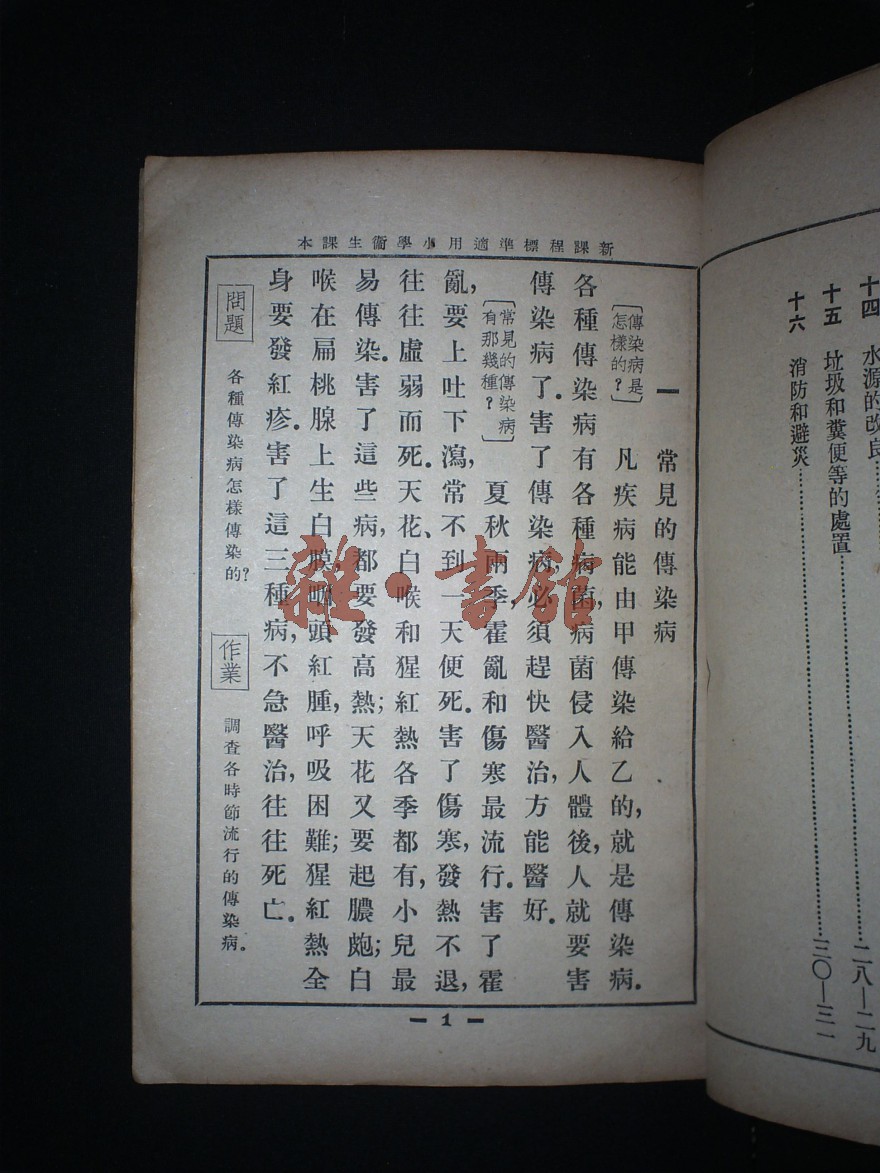 十四 水源的改良
十五 垃圾和糞便等的處置 二八—二九
十六 消防和避災 三〇—三一
新課程標準適用小學衞生課本
一 常見的傳染病
〔傳染病是怎樣的?〕 凡疾病能由甲傳染給乙的,就是傳染病。
各種傳染病有各種病菌,病菌侵入人體後,人就要害
傳染病了。害了傳染病,必須趕快醫治,方能醫好。
〔常見的傳染病有那幾種?〕 夏秋兩季,霍亂和傷寒最流行。害了霍
亂,要上吐下瀉,常不到一天便死。害了傷寒,發熱不退,
往往虛弱而死。天花、白喉和猩紅熱各季都有,小兒最
易傳染。害了這些病,都要發高熱;天花又要起膿皰;白
喉在扁桃腺上生白膜,喉頭紅腫,呼吸困難;猩紅熱全
身要發紅疹。害了這三種病,不急醫治,往往死亡。
問題 各種傳染病怎樣傳染的?
作業 調查各時節流行的傳染病。
— 1 —
雜·書館